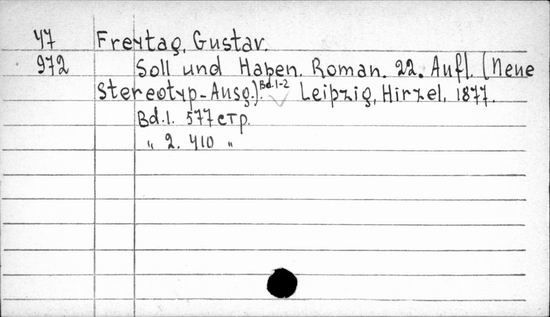 47 Freytag, Gustav.
972 Soll und Haben. Roman. 22. Aufl. (Neue
Stereotyp-Ausg.). Bd. 1-2 Leipzig, Hirzel, 1877.
Bd. 1. 577 стр.
„ 2. 410 „